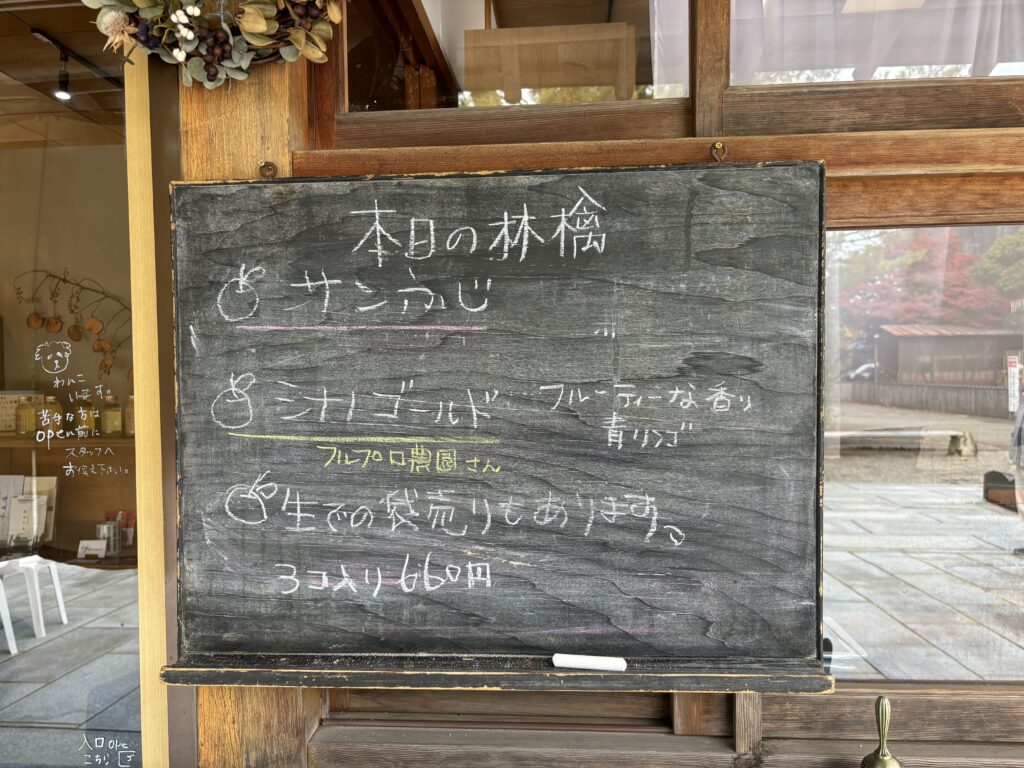 本日の林檎
サンふじ
シナノゴールド
フルーティーな香り
青リンゴ
フルプロ農園さん
生での袋売りもあります。
3コ入り660円
わんこ
います。
苦手な方は
open前に
スタッフへ
お伝え下さい。
入口open
こちら